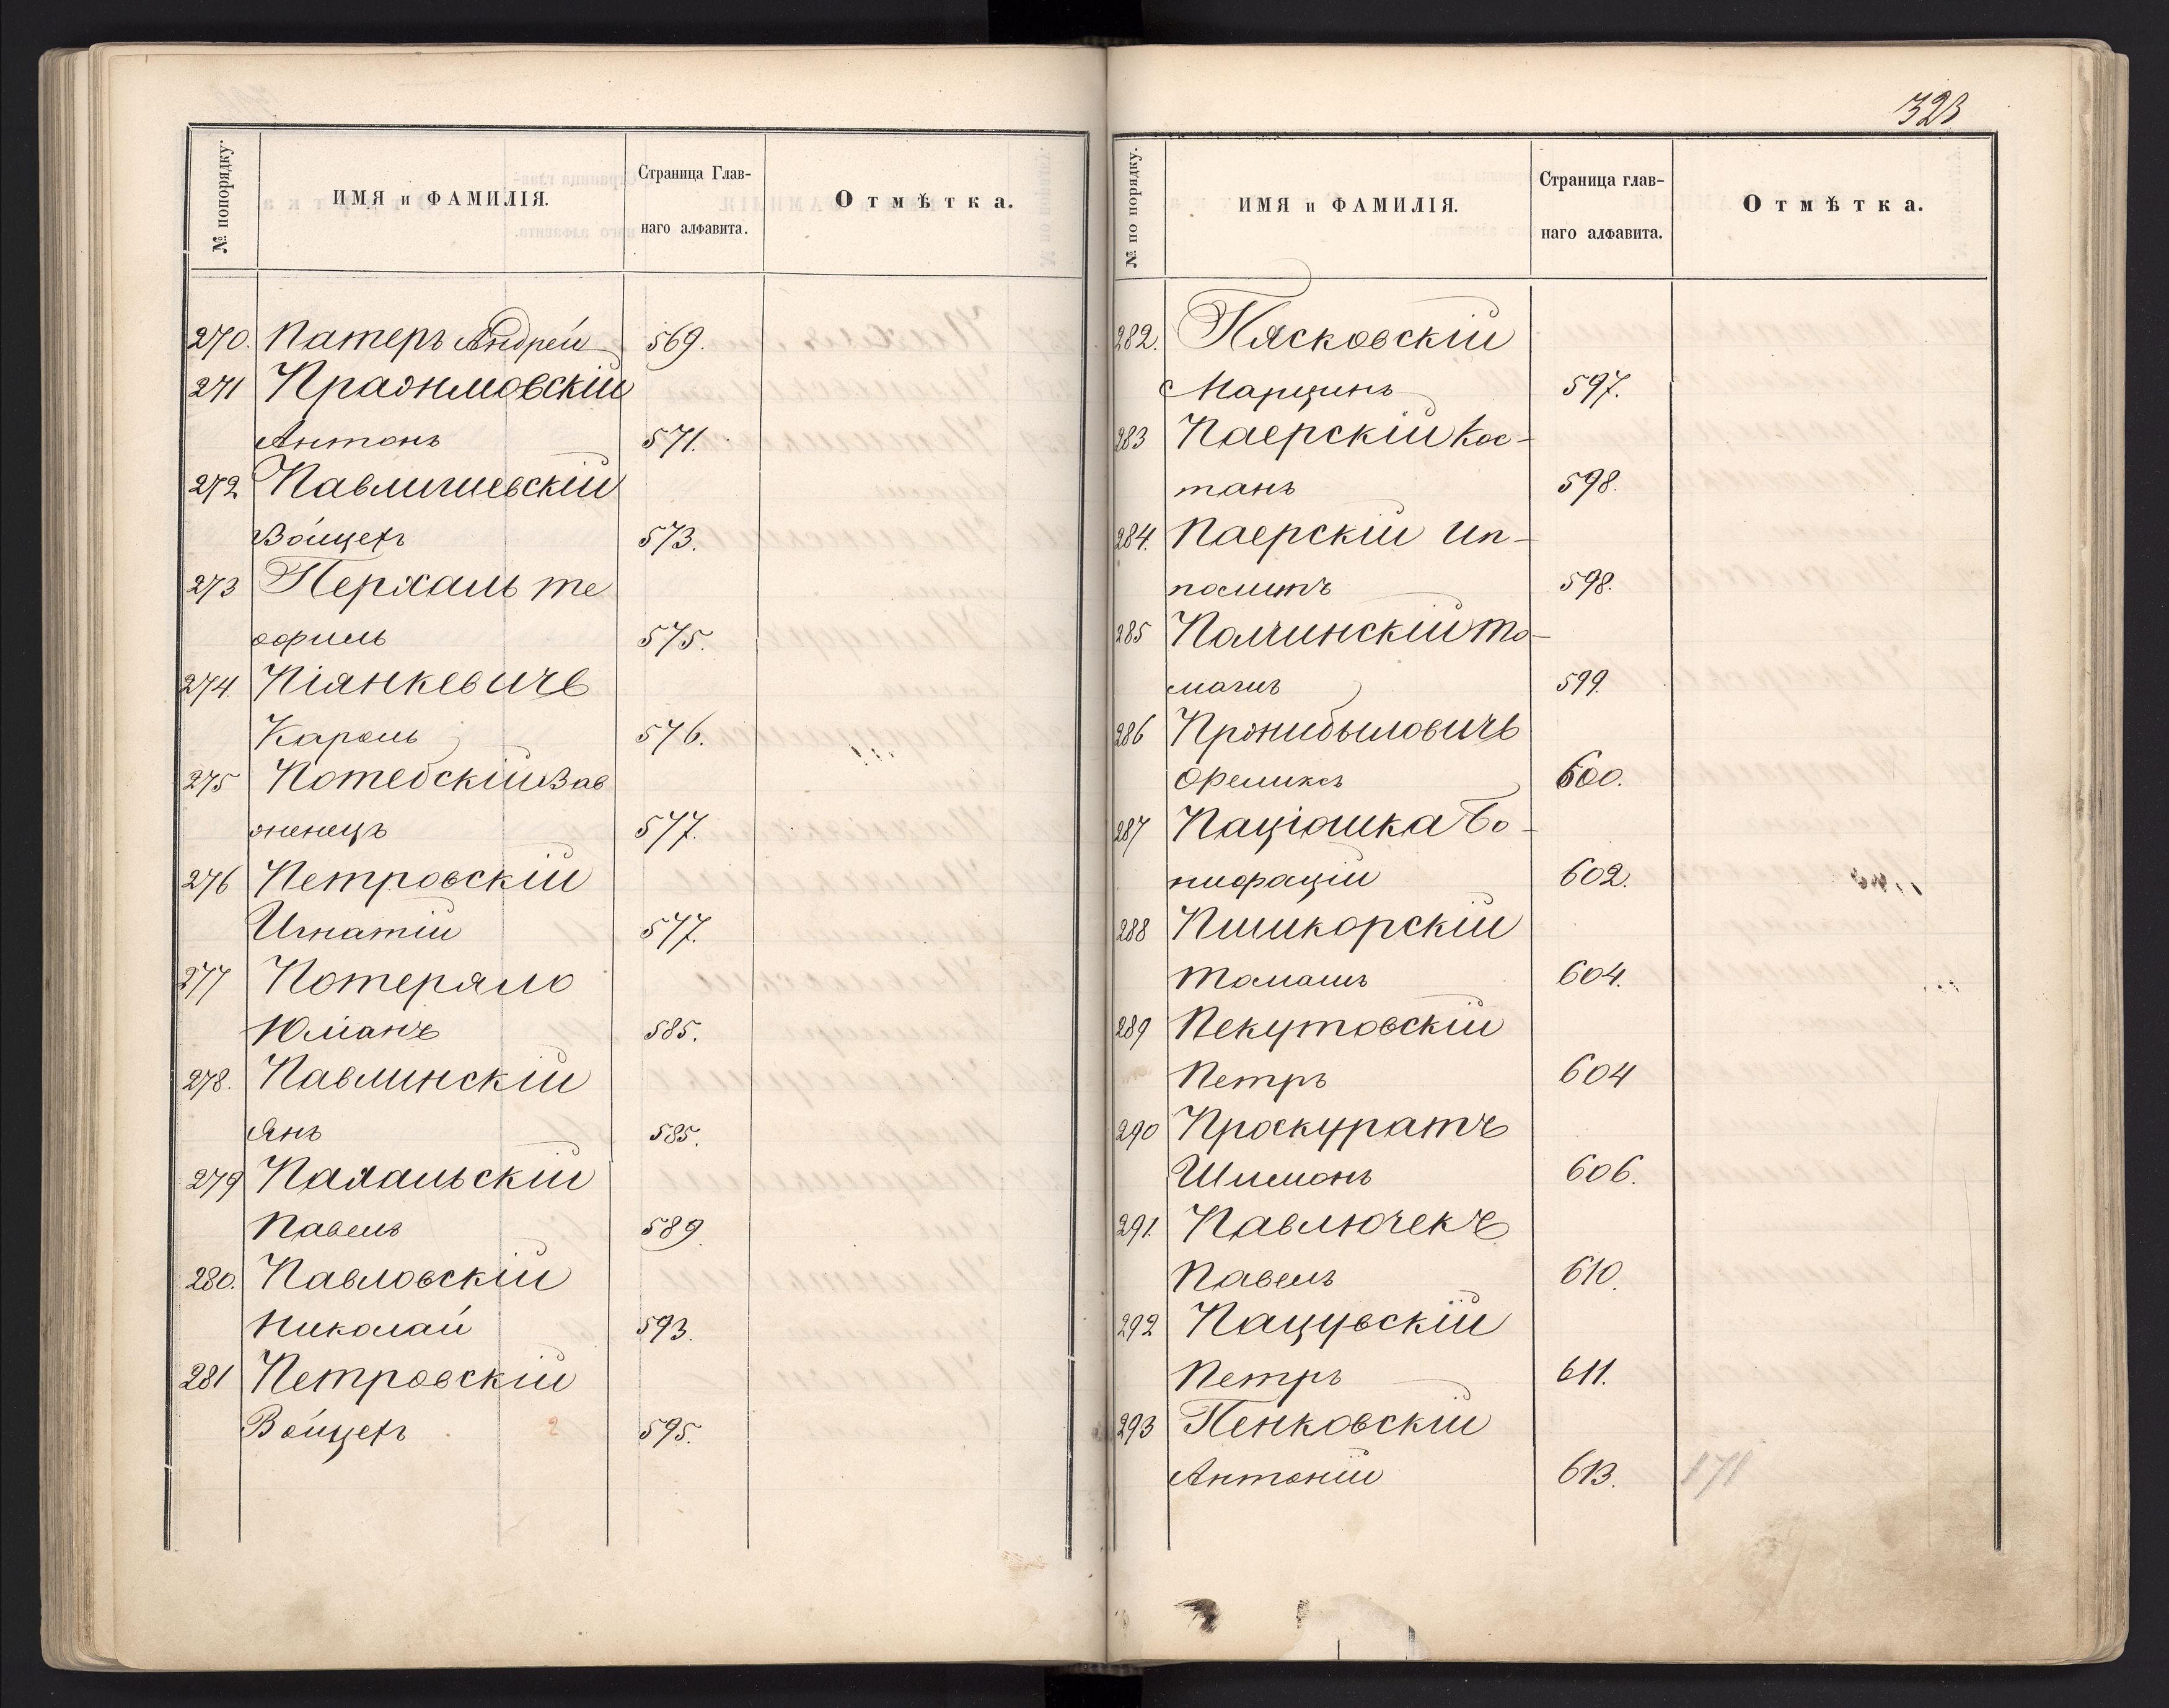 323
№ попорядку.
ИМЯ и ФАМИЛІЯ.
Страница Глав-
наго алфавита.
Отмѣтка.
270. Патеръ Андрей 569.
271 Пражмовскій
Антонъ 571.
272 Павлишевскій
Войцехъ 573.
273 Перхаль Те
офиль 575.
274. Піянкевичъ
Кароль 576.
275 Потебскій Вав
женецъ 577.
276 Петровскій
Игнатій 577.
277 Потеряло
Юліанъ 585.
278. Павлинскій
Янъ 585.
279 Пахальскій
Павелъ 589.
280. Павловскій
Николай 593.
281 Петровскій
Войцехъ 2 595.
№ по порядку.
ИМЯ и ФАМИЛІЯ.
Страница глав-
наго алфавита.
Отмѣтка.
282. Пясковскій
Марцинъ 597.
283 Паерскій Кос-
танъ 598.
284. Паерскій Ип-
политъ 598.
285 Палчинскій То-
машъ 599.
286 Пржибыловичъ
Феликсъ 600.
287 Паціошка Бо-
нифацій 602.
288 Пшикорскій
Томашъ 604.
289 Пекутовскій
Петръ 604
290 Проскуратъ
Шимонъ 606.
291. Павлючекъ
Павелъ 610.
292 Пацувскій
Петръ 611.
293 Пенковскій
Антоній 613. 171